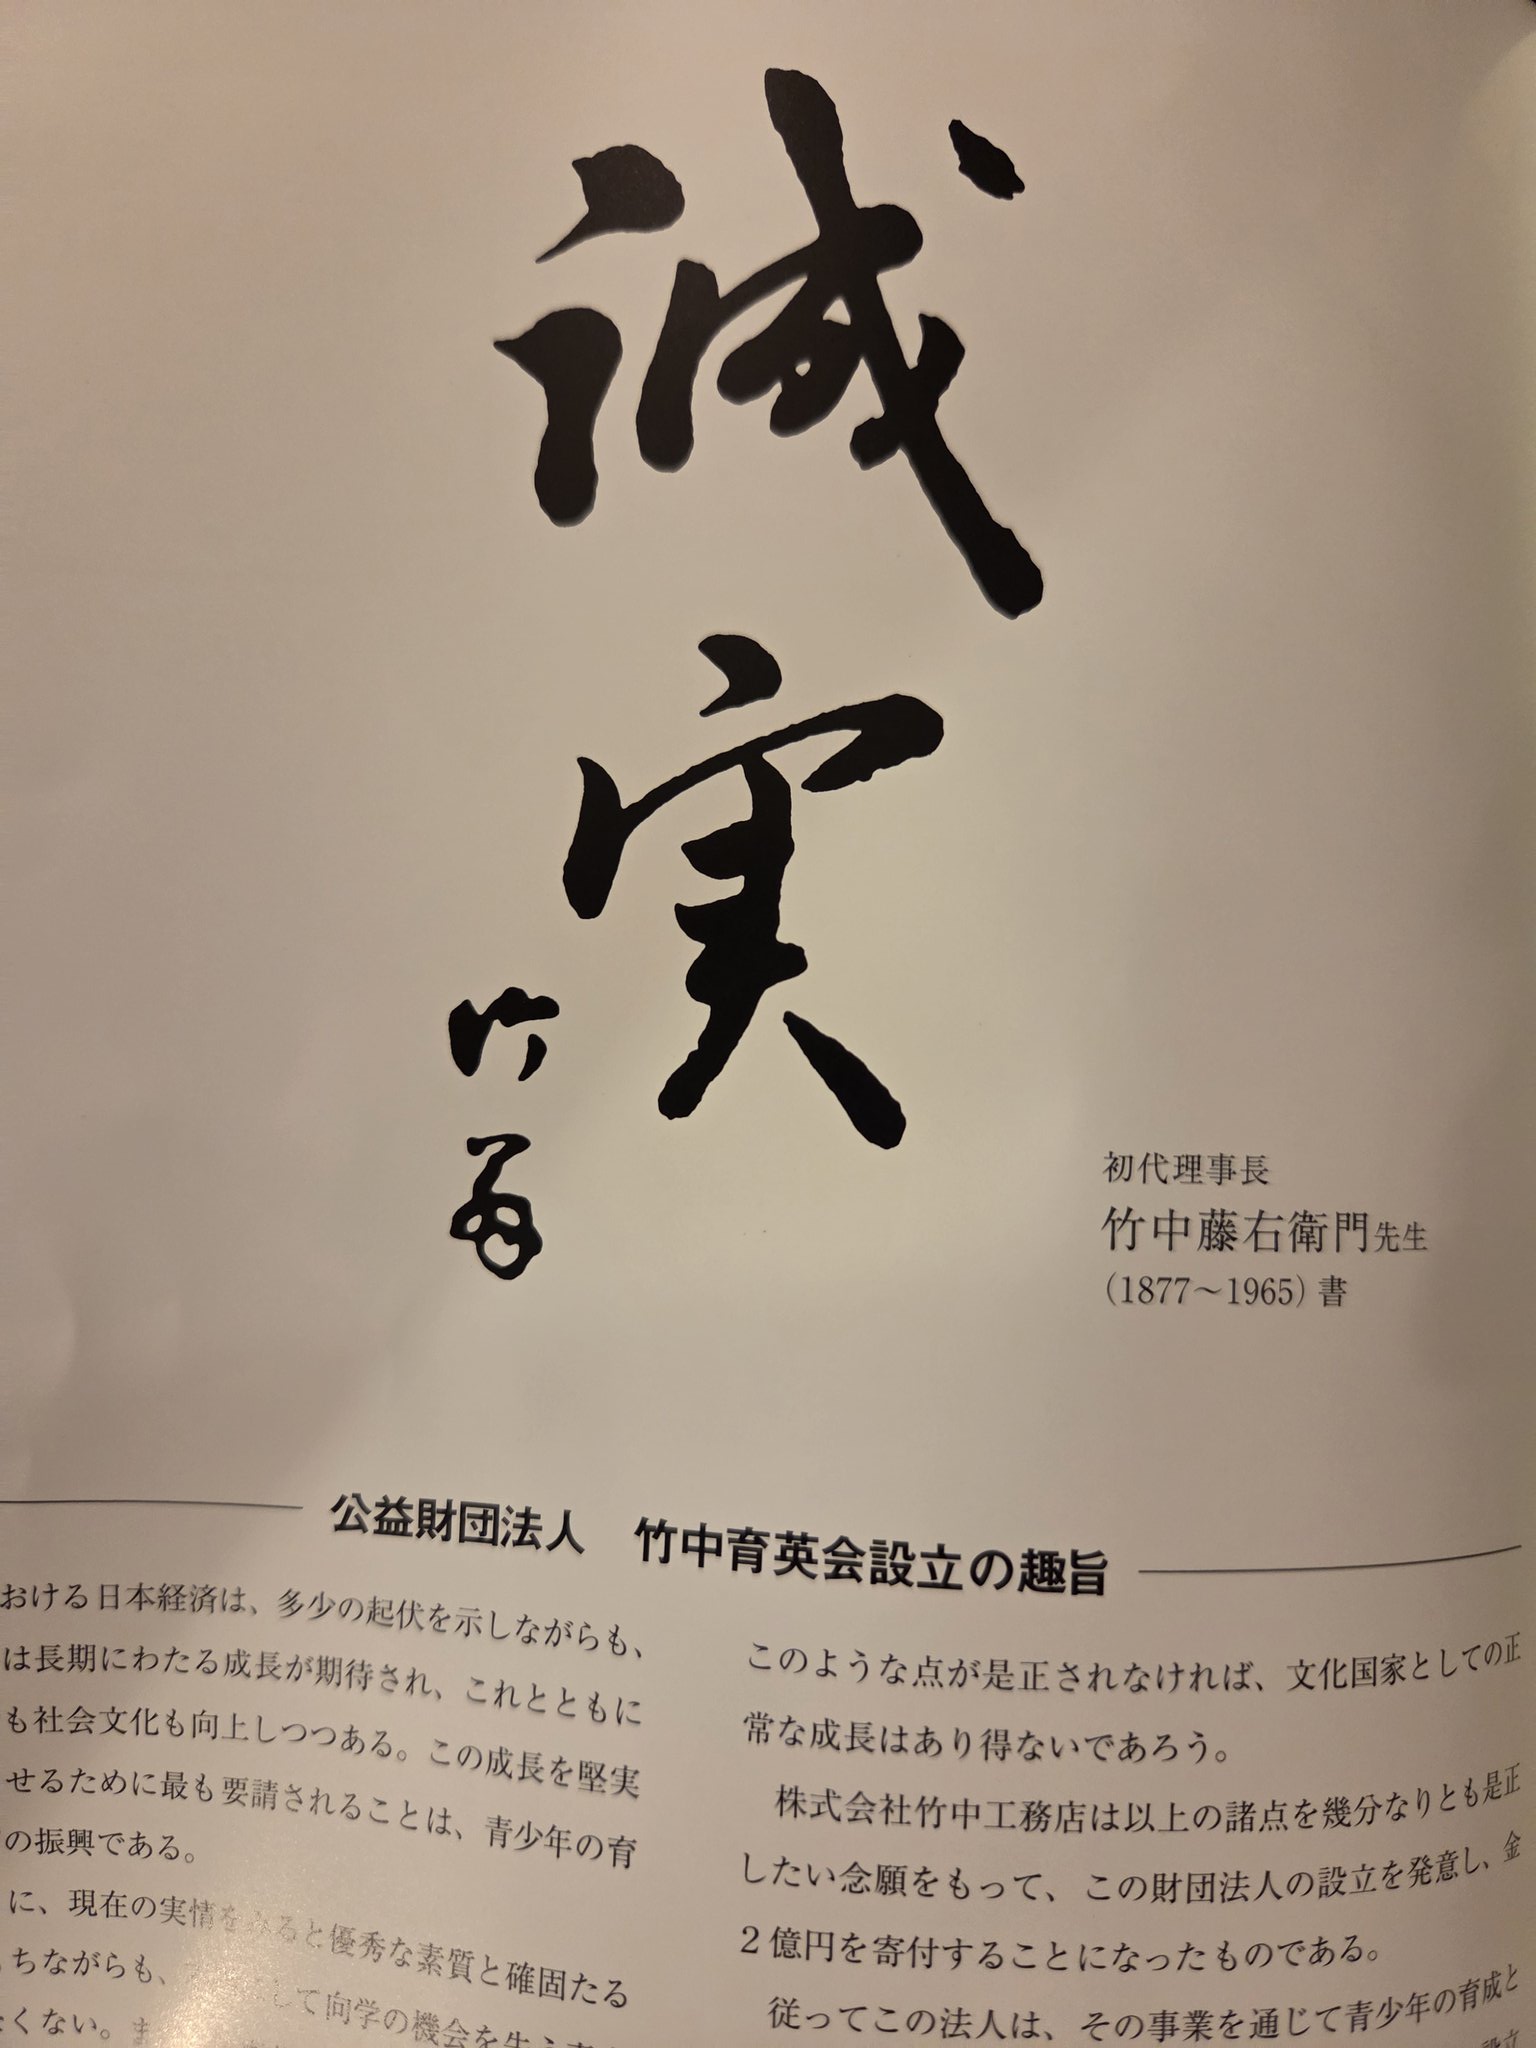 誠実
初代理事長
竹中藤右衛門先生
(1877〜1965) 書
公益財団法人 竹中育英会設立の趣旨
おける日本経済は、多少の起伏を示しながらも、
は長期にわたる成長が期待され、これとともに
も社会文化も向上しつつある。この成長を堅実
せるために最も要請されることは、青少年の育
の振興である。
に、現在の実情をみると優秀な素質と確固たる
ちながらも、
して向学の機会を
くない。ま
このような点が是正されなければ、文化国家としての正
常な成長はあり得ないであろう。
株式会社竹中工務店は以上の諸点を幾分なりとも是正
したい念願をもって、この財団法人の設立を発意し、金
2億円を寄付することになったものである。
従ってこの法人は、その事業を通じて青少年の育成と
設立